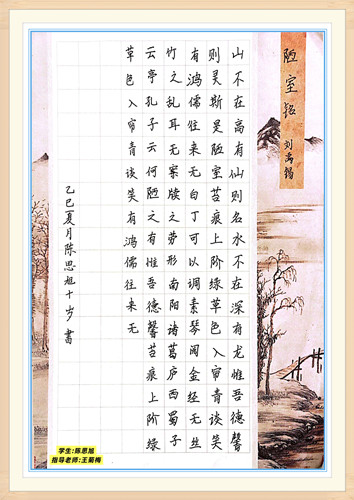 陋室铭
刘禹锡
山不在高有仙则名水不在深有龙惟吾德馨
则灵斯是陋室苔痕上阶绿草色入帘青谈笑
有鸿儒往来无白丁可以调素琴阅金经无丝
竹之乱耳无案牍之劳形南阳诸葛庐西蜀子
云亭孔子云何陋之有惟吾德馨苔痕上阶绿
草色入帘青谈笑有鸿儒往来无
乙巳夏月陈思旭十岁书
学生:陈思旭
指导老师:王菊梅